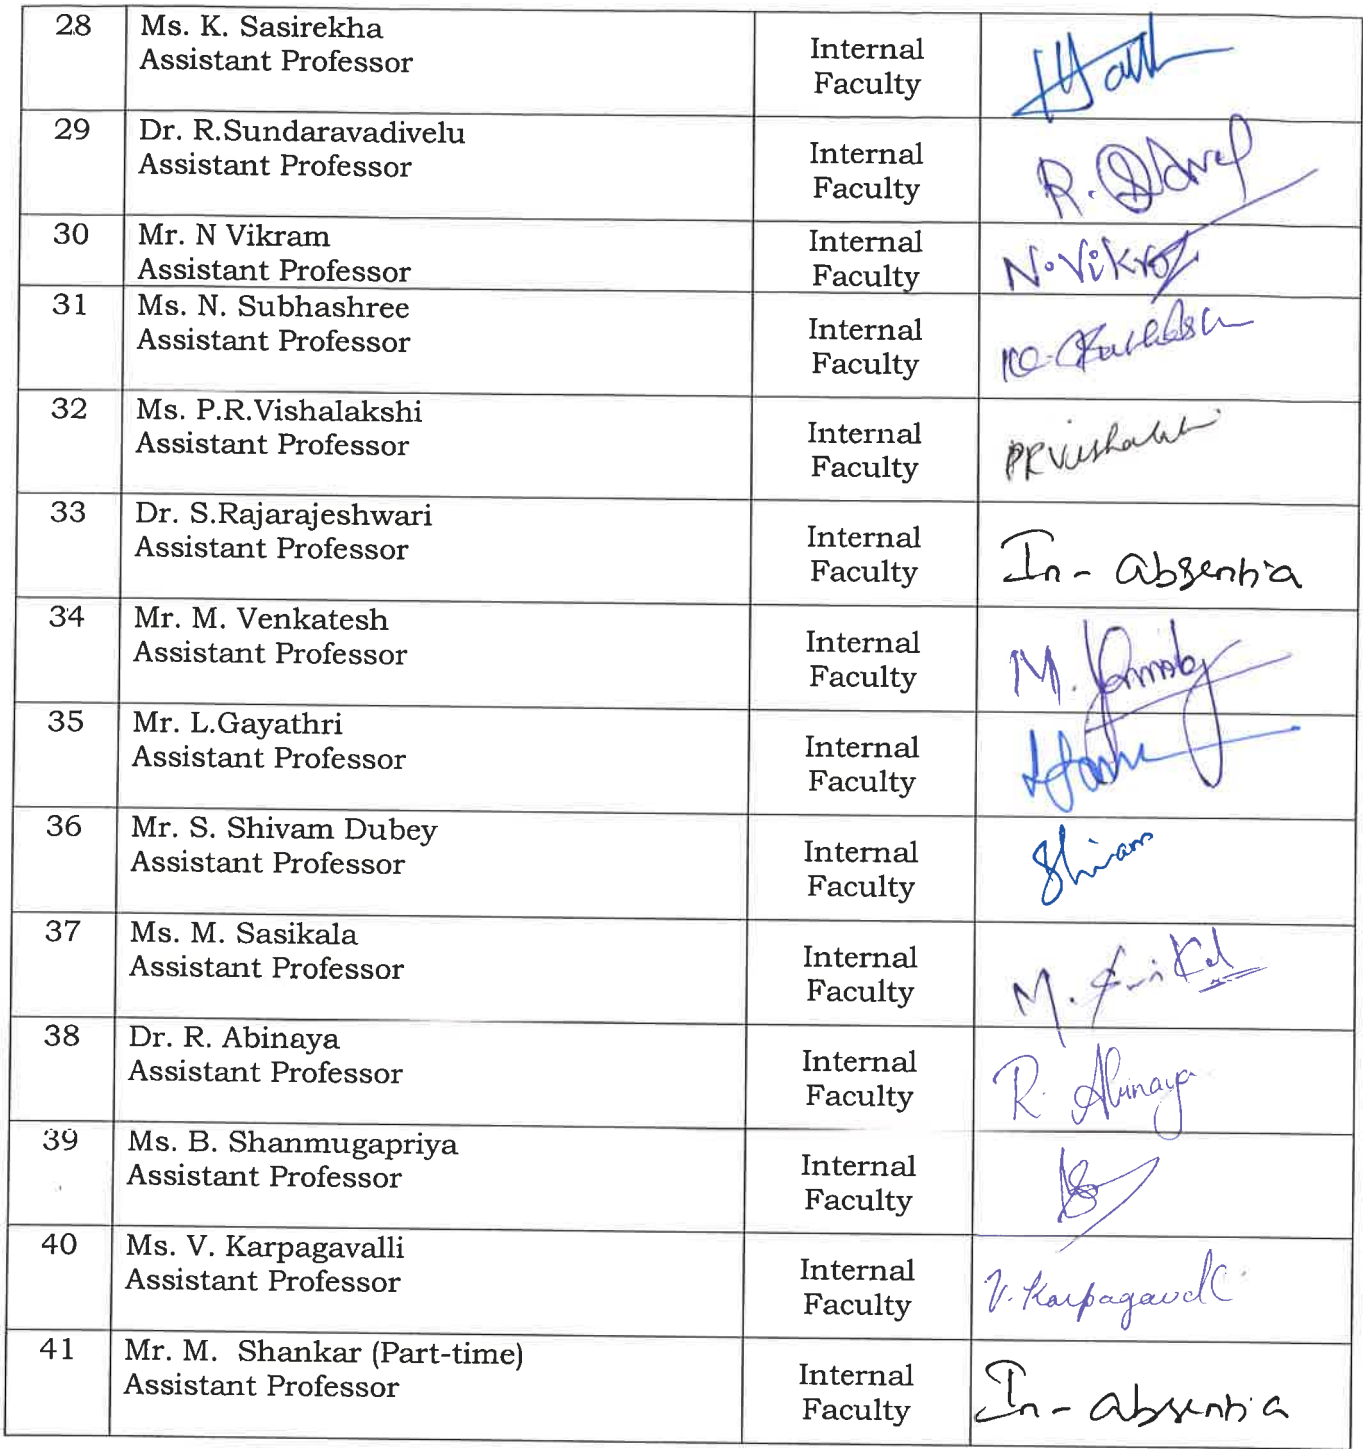 28
Ms. K. Sasirekha
Assistant Professor
Internal
Faculty
29
Dr. R.Sundaravadivelu
Assistant Professor
Internal
Faculty
30
Mr. N Vikram
Assistant Professor
Internal
Faculty
31
Ms. N. Subhashree
Assistant Professor
Internal
Faculty
32
Ms. P.R.Vishalakshi
Assistant Professor
Internal
Faculty
33
Dr. S.Rajarajeshwari
Assistant Professor
Internal
Faculty
In- absentia
34
Mr. M. Venkatesh
Assistant Professor
Internal
Faculty
M.
35
Mr. L.Gayathri
Assistant Professor
Internal
Faculty
36
Mr. S. Shivam Dubey
Assistant Professor
Internal
Faculty
Shivam
37
Ms. M. Sasikala
Assistant Professor
Internal
Faculty
M.
38
Dr. R. Abinaya
Assistant Professor
Internal
Faculty
R. Abinaya
39
Ms. B. Shanmugapriya
Assistant Professor
Internal
Faculty
40
Ms. V. Karpagavalli
Assistant Professor
Internal
Faculty
41
Mr. M.  Shankar (Part-time)
Assistant Professor
Internal
Faculty
In- absentia